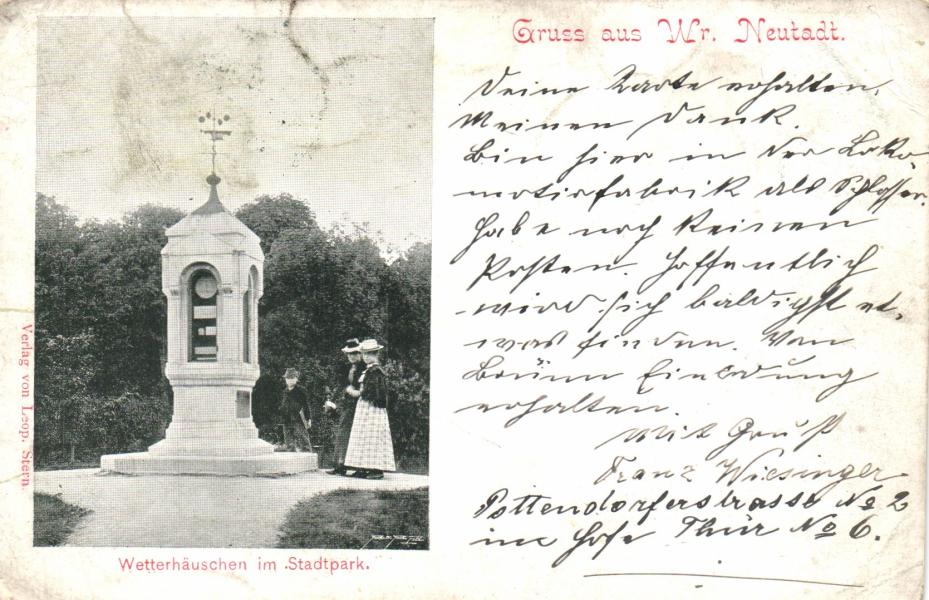 Gruss aus Wr. Neutadt.
Deine Karte erhalten,
Meinen Dank.
Bin hier in der Loko-
motivfabrik als Schlosser.
Habe noch keinen
Posten. Hoffentlich
wird sich baldigst et-
was finden. Von
Brünn Einladung
erhalten.
Mit Gruß
Franz Wiesinger
Pottendorferstrasse No 2
im Hofe Thür No 6.
Verlag von Leop. Stern.
Wetterhäuschen im Stadtpark.